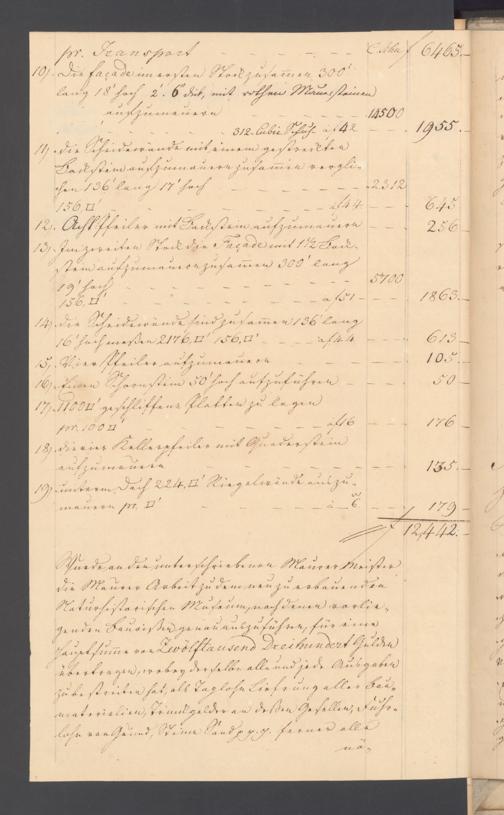 pr. Transport - - - - - C. Schu f 6465.-
10). Die façade im ersten Stock zusammen 300'
lang 18' hoch 2'. 6 dick, mit rothen Mauersteinen
aufzumauern - - - 14500
312. Cubic Schuh. a f 42 - - 1955.-
11). die Scheidewände mit einem gestreckten
Backstein aufzumauern zusammen vergli-
chen 136' lang 17' hoch - - - 2312
156.□' - - - a f 44 - - - 645
12). Acht Pfeiler mit Backstein aufzumauern - 256 -
13). Im zweiten Stock die Façade mit 1½ Back-
stein aufzumauern zusammen 300' lang
19' hoch - - - 5700
156.□' - - - a f 51 - - - 1863.-
14). die Scheidewände sind zusammen 136' lang
16' hoch messen 2176.□' 156.□' - a f 44 - - 613 -
15). Vier Pfeiler aufzumauern - - - 105.-
16). Einen Schornstein 50' hoch aufzuführen - - - 50 -
17). 1100□' geschliffene Platten zu legen
pr. 100□' - - - a f 16 - - - 176 -
18). die vier Kellerpfeiler mit Quaderstein
aufzumauern - - - 135.-
19). unterm Dach 224.□' Riegelwände auszu-
mauern pr. □' - - - a - 6 - - 179 -
f 12,442.-
Wurde an den unterschriebenen Maurer Meister
die Maurer Arbeit zu dem neu zu erbauenden
Naturhistorischen Museum, nach denen vorlie-
genden Baurissen genau auszuführen, für eine
Hauptsumme von Zwölftausend Dreihundert Gulden
übertragen, wobey derselbe alle und jede Ausgaben
zu bestreiten hat, als Taglohn Lieferung aller Bau-
materialien, Trinkgelder an dessen Gesellen, Fuhr-
lohn von Grund, Steine Sand p.p.p. ferner alle
nö-